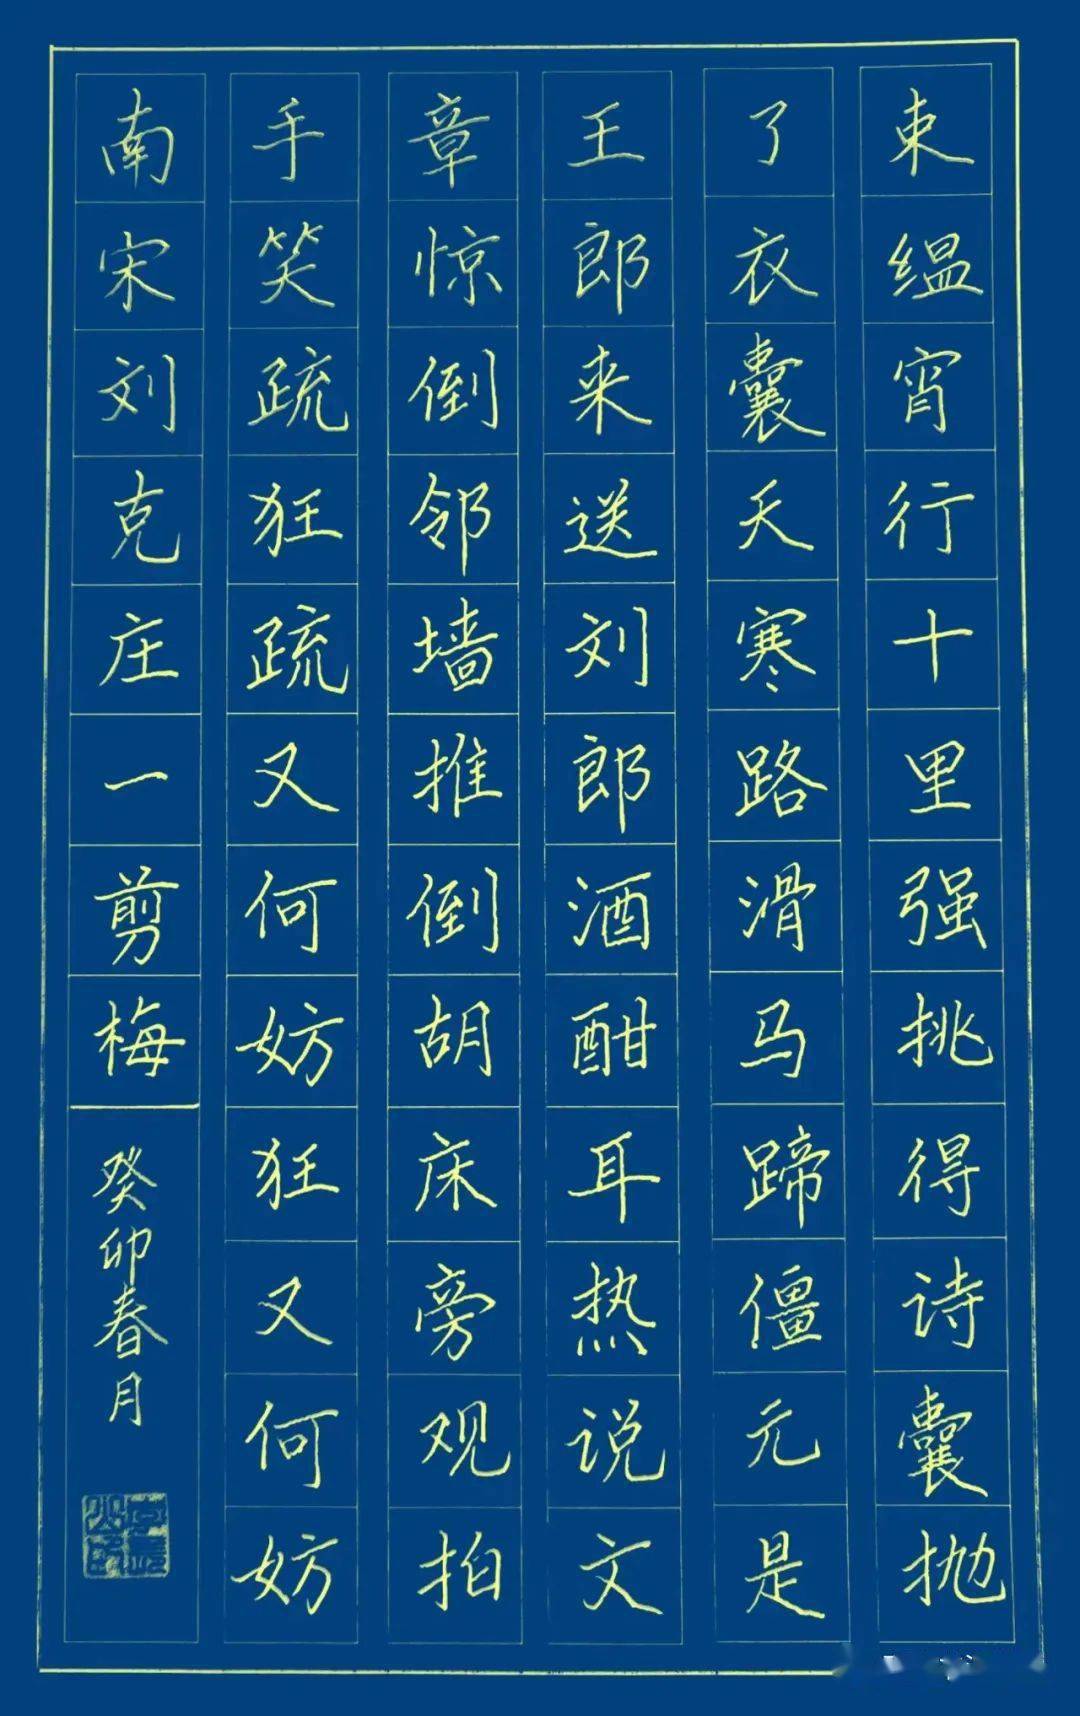 束缊宵行十里强挑得诗囊抛
了衣囊天寒路滑马蹄僵元是
王郎来送刘郎酒酣耳热说文
章惊倒邻墙推倒胡床旁观拍
手笑疏狂疏又何妨狂又何妨
南宋刘克庄一剪梅
癸卯春月